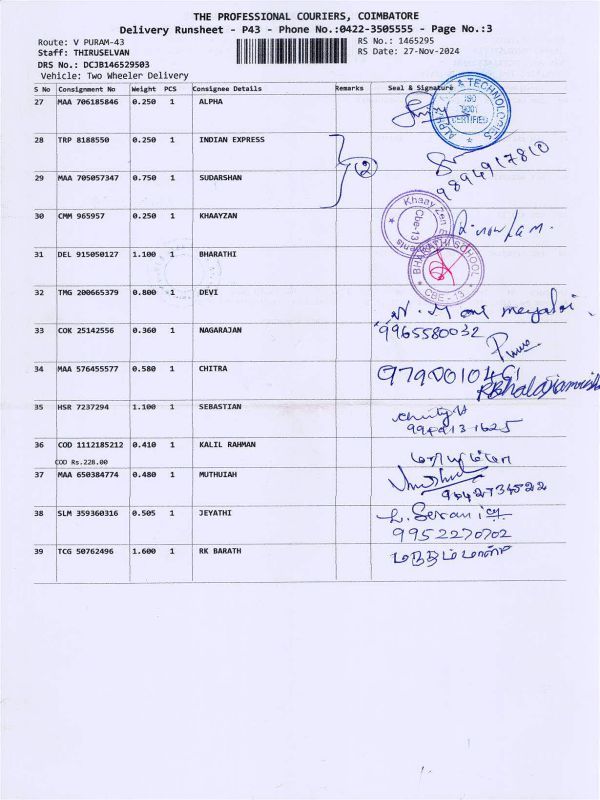 THE PROFESSIONAL COURIERS, COIMBATORE
Delivery Runsheet - P43 - Phone No.:0422-3505555 - Page No.:3
Route: V PURAM-43 RS No.: 1465295
Staff: THIRUSELVAN RS Date: 27-Nov-2024
DRS No.: DCJB146529503
Vehicle: Two Wheeler Delivery
S No Consignment No Weight PCS Consignee Details Remarks Seal & Signature
27 MAA 706185846 0.250 1 ALPHA
& TECHNOLOGIES
ISO
9001
CERTIFIED
28 TRP 8188550 0.250 1 INDIAN EXPRESS
2
9894917810
29 MAA 705057347 0.750 1 SUDARSHAN
30 CMM 965957 0.250 1 KHAAYZAN
Khaay Zen
Cbe-13
31 DEL 915050127 1.100 1 BHARATHI
BHARATHI SCHOOL
CBE - 13
32 TMG 200665379 0.800 1 DEVI
33 COK 25142556 0.360 1 NAGARAJAN
9965580032
34 MAA 576455577 0.580 1 CHITRA
35 HSR 7237294 1.100 1 SEBASTIAN
36 COD 1112185212 0.410 1 KALIL RAHMAN
COD Rs.228.00
37 MAA 650384774 0.480 1 MUTHUIAH
9442734522
38 SLM 359360316 0.505 1 JEYATHI
9952270702
39 TCG 50762496 1.600 1 RK BARATH